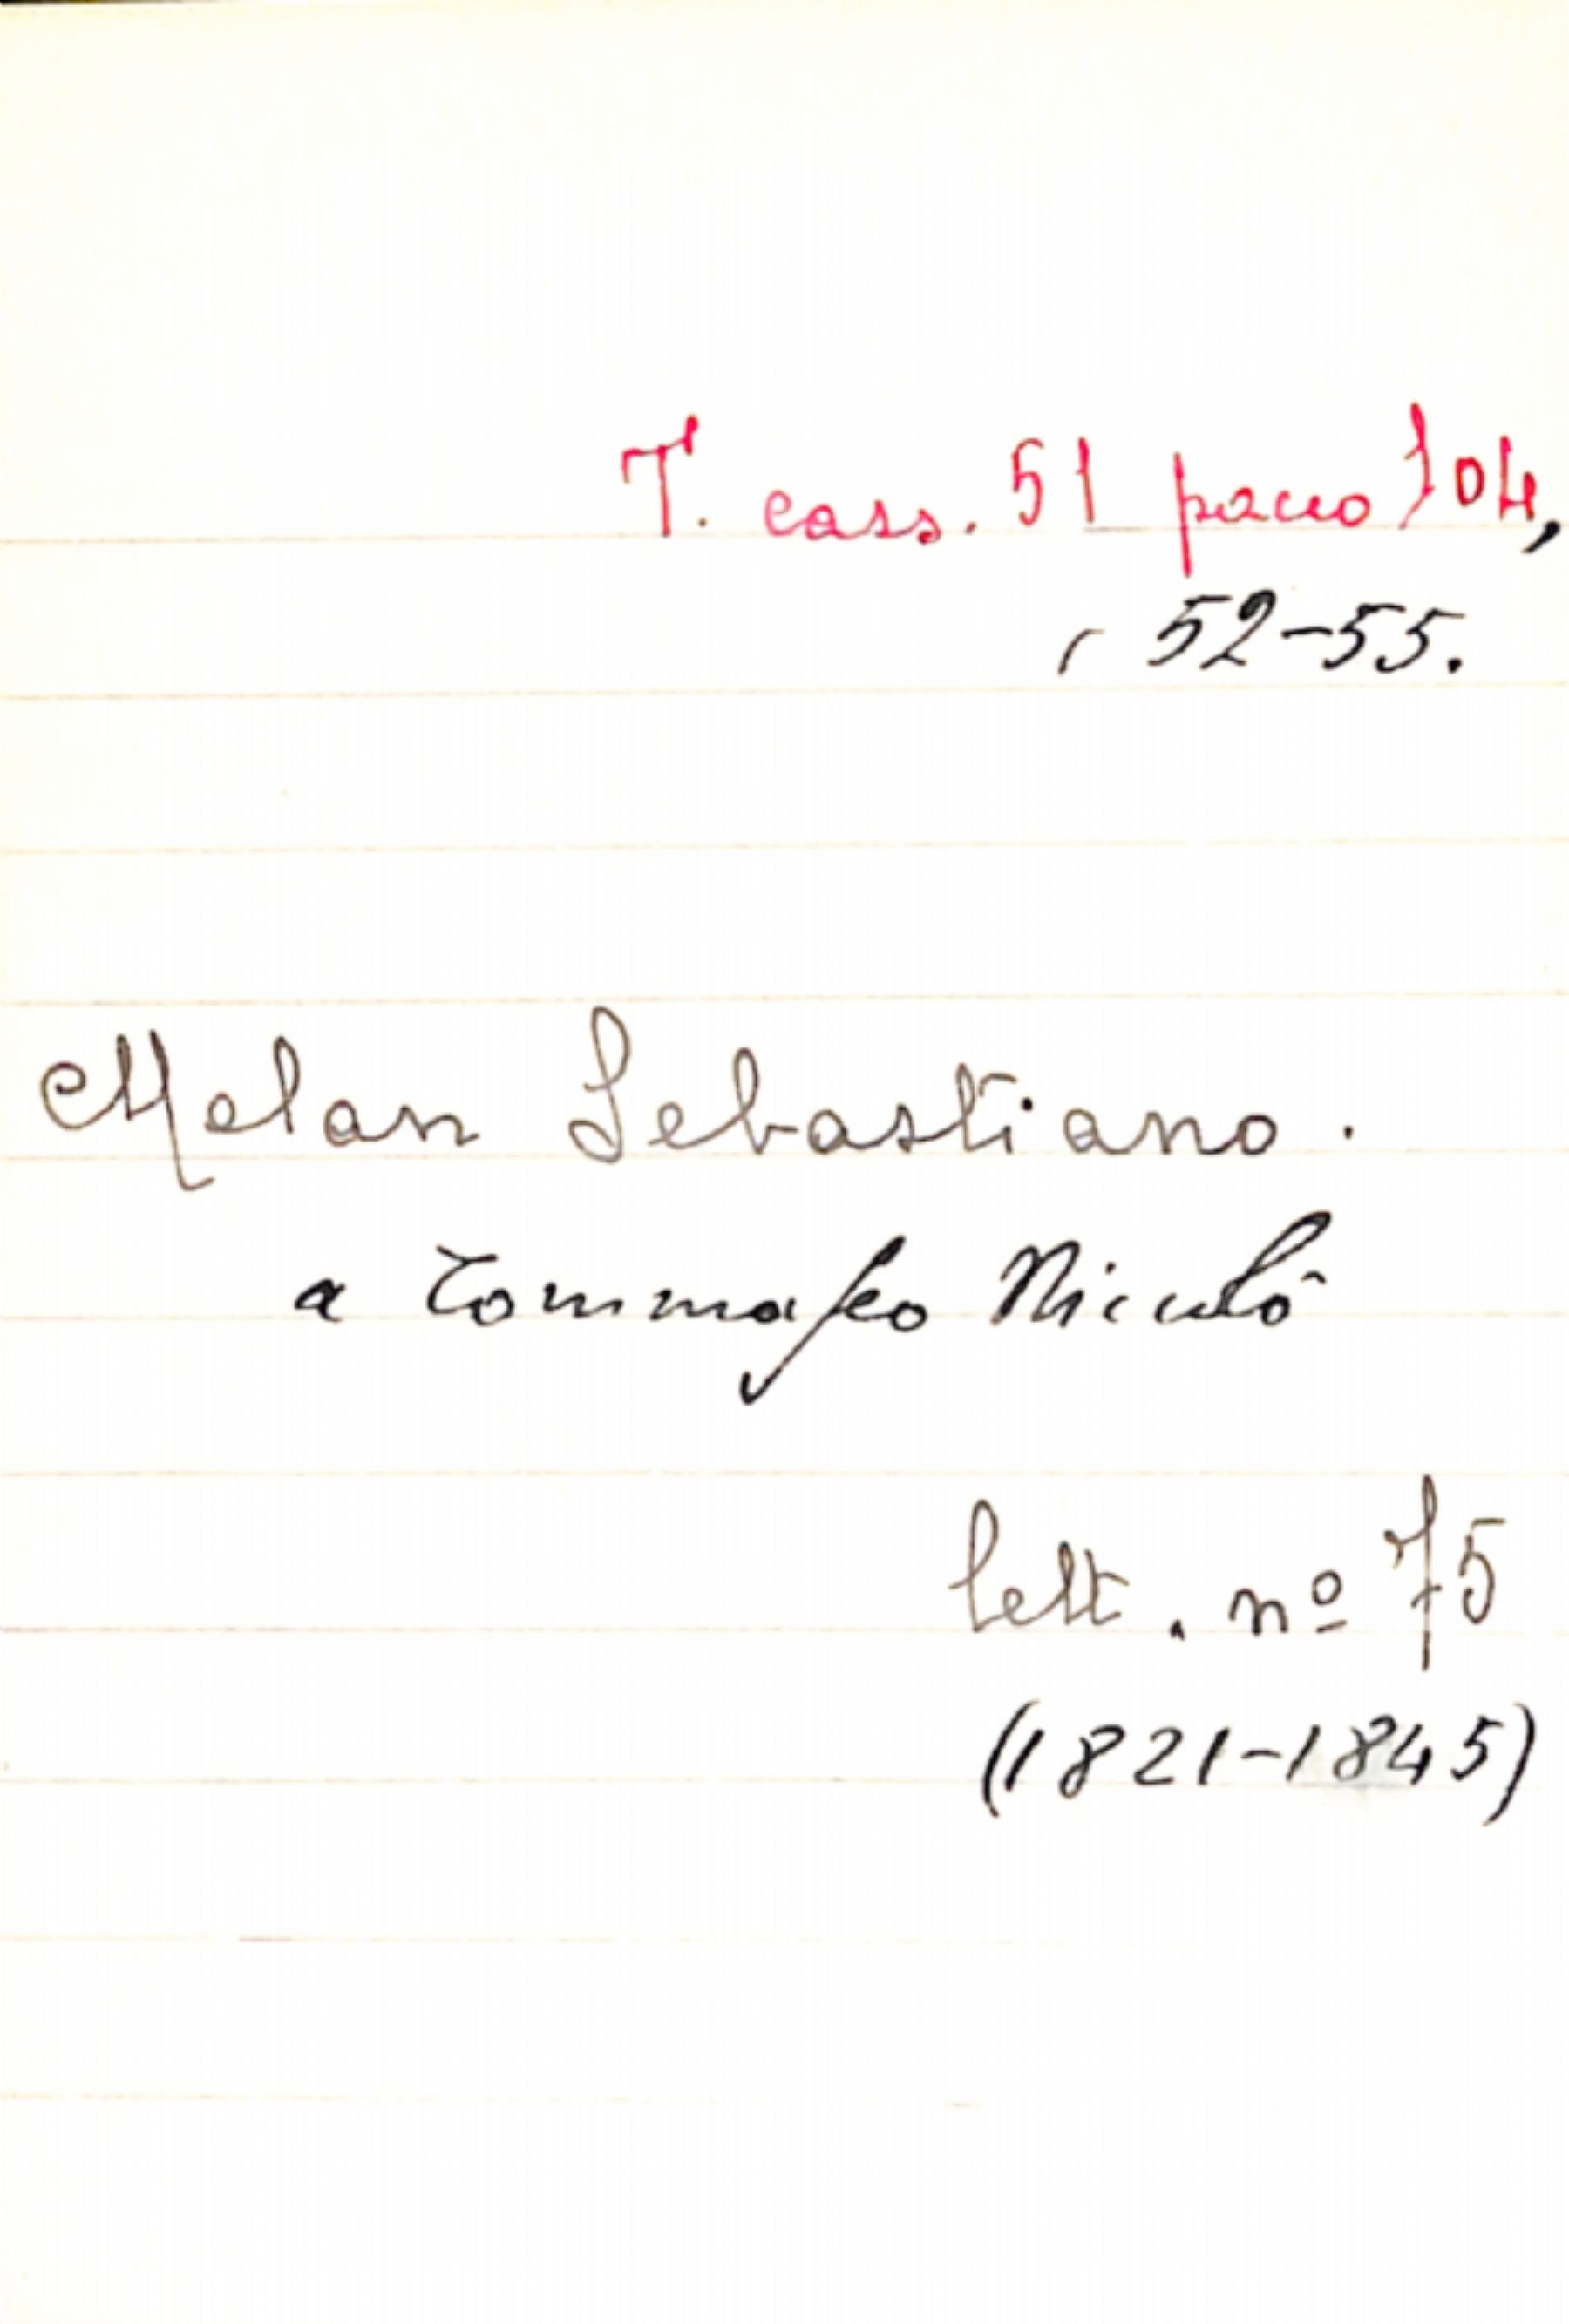 T. cass. 51 pacco 104,
52-55.
Melan Sebastiano.
a Tommaseo Niccolò
lett. nº 75
(1821-1845)